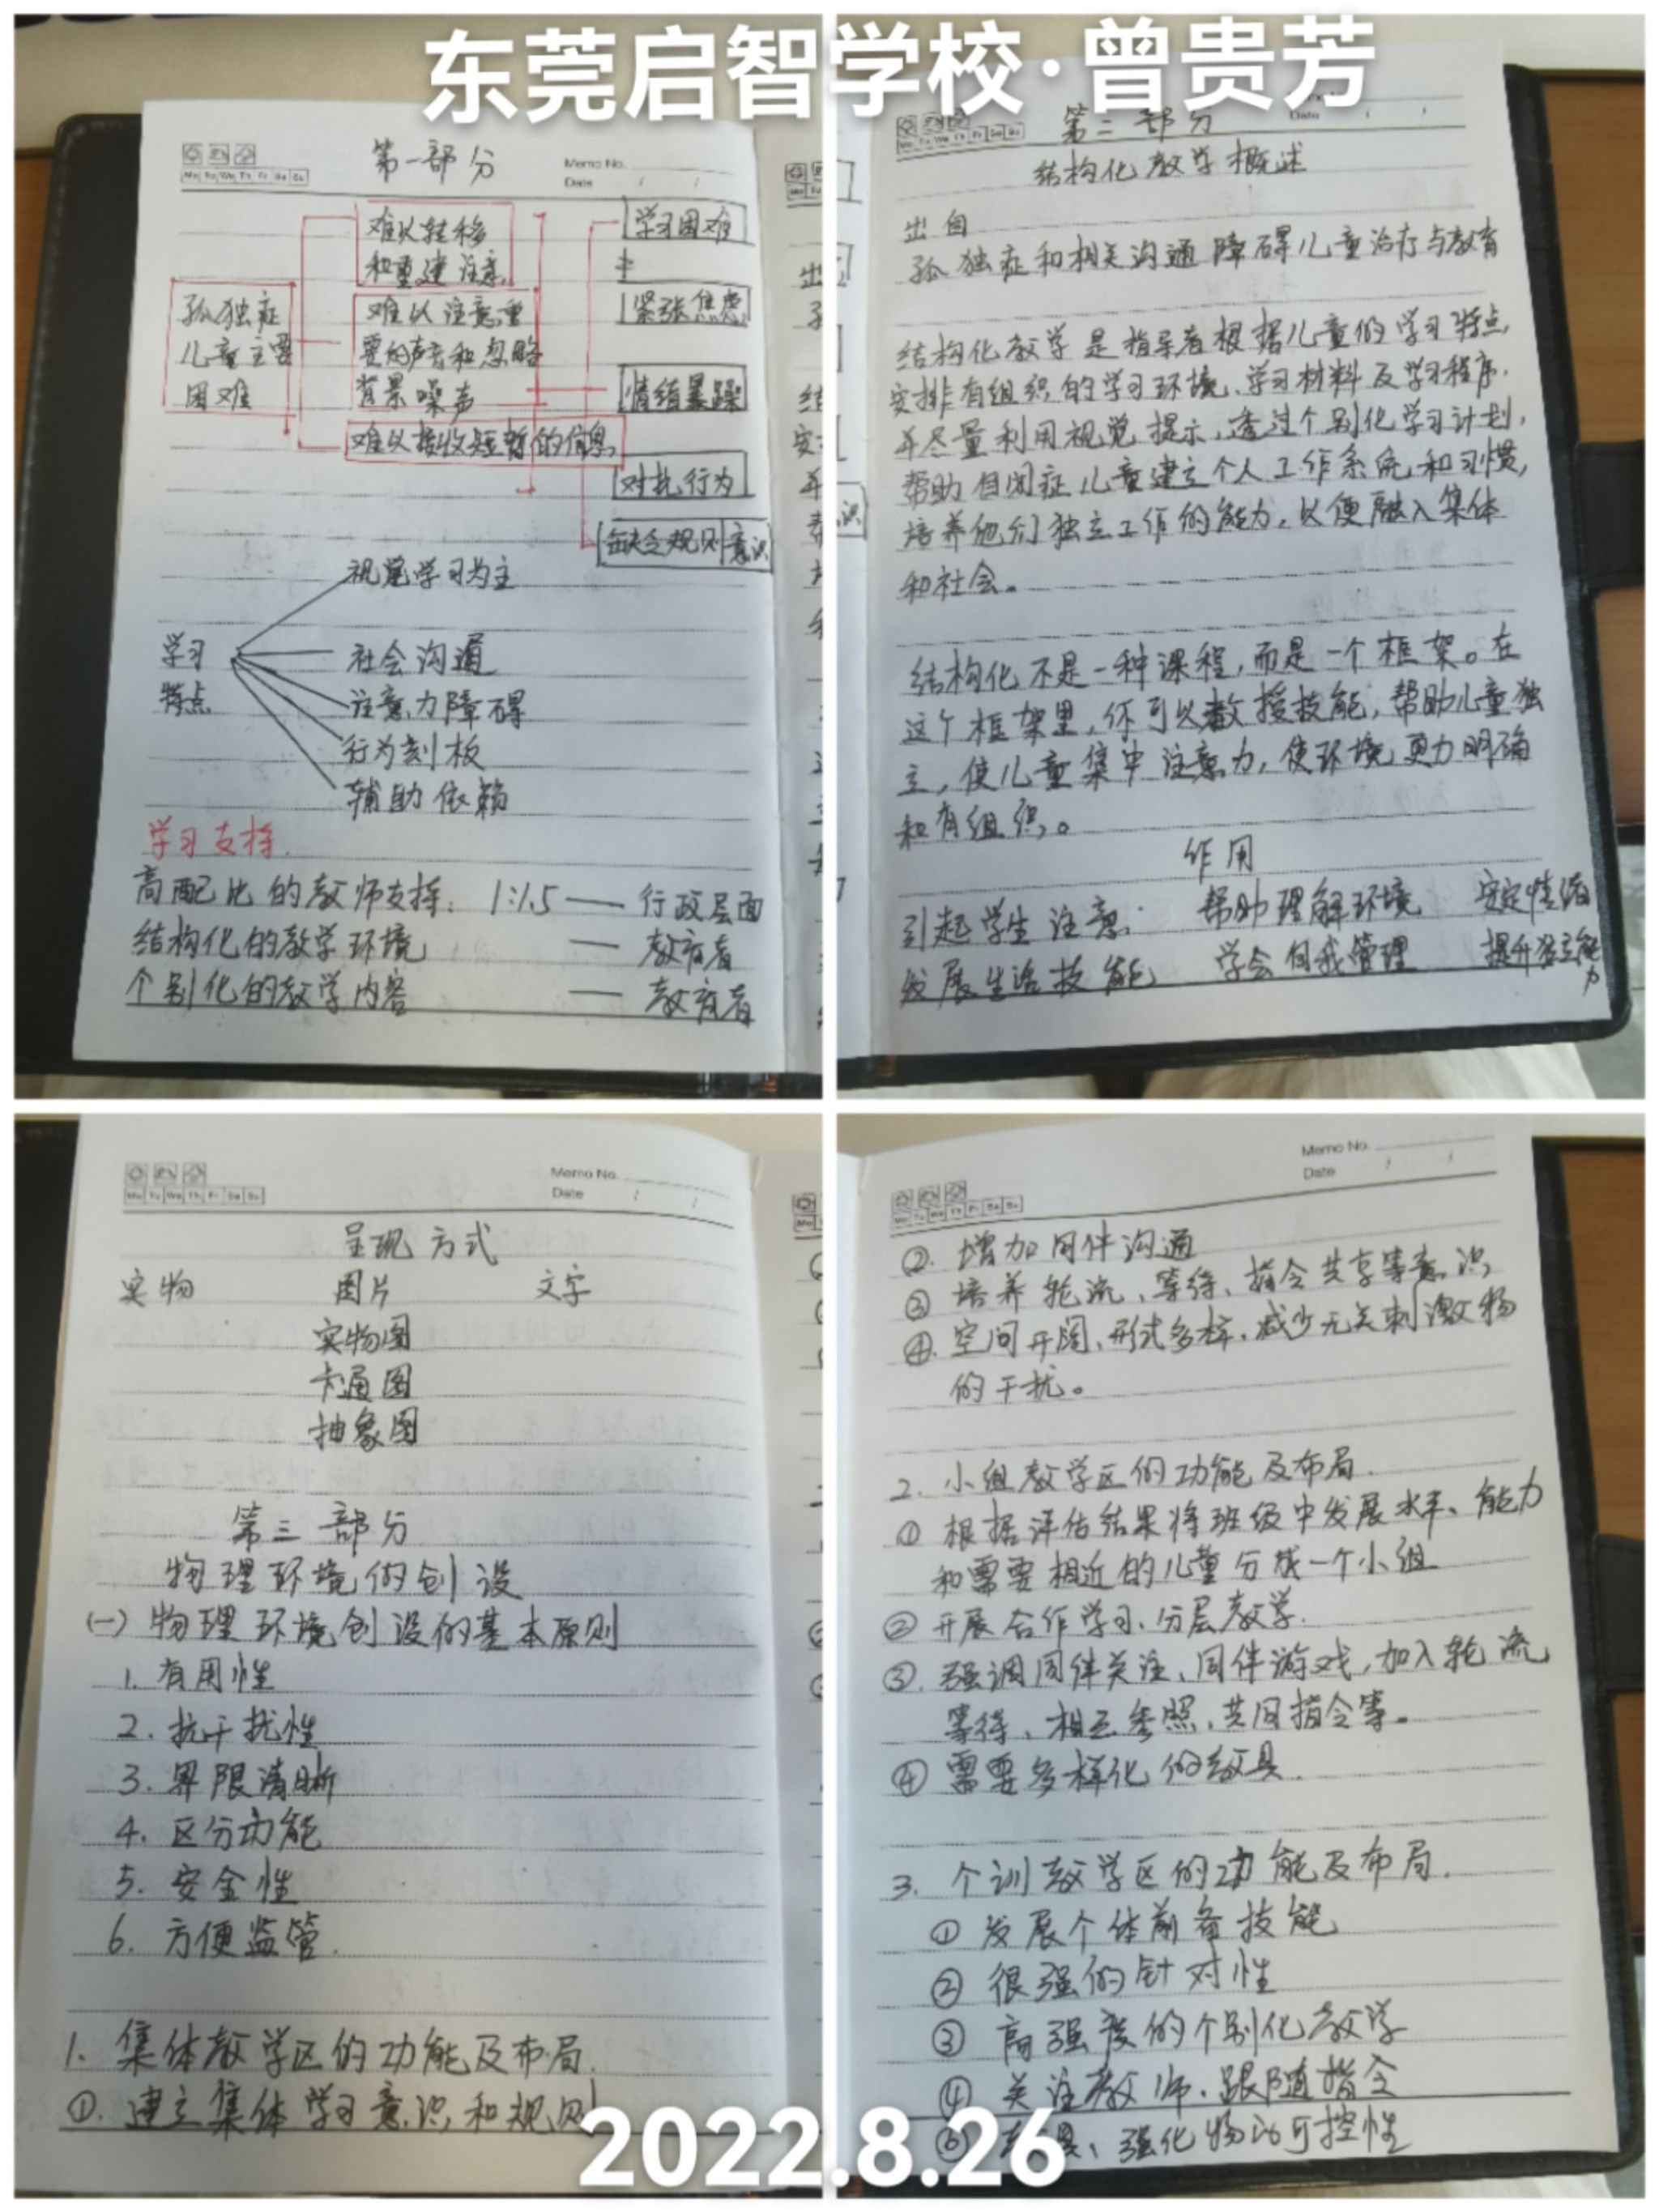 东莞启智学校·曾贵芳
第一部分
Memo No.
Mo Tu We Th Fr Sa Su
Date
难以转移
和重建注意
孤独症
儿童主要
困难
难以注意重
要的声音和忽略
背景噪声
难以接收短暂的信息
学习困难
紧张焦虑
情绪暴躁
对抗行为
缺乏规则意识
学习
特点
视觉学习为主
社会沟通
注意力障碍
行为刻板
辅助依赖
学习支持
高配比的教师支持: 1:1.5 —— 行政层面
结构化的教学环境 —— 教育者
个别化的教学内容 —— 教育者
第二部分
Date
Mo Tu We Th Fr Sa Su
结构化教学概述
出自
孤独症和相关沟通障碍儿童治疗与教育
结构化教学是指导者根据儿童的学习特点,
安排有组织的学习环境、学习材料及学习程序,
并尽量利用视觉提示,透过个别化学习计划,
帮助自闭症儿童建立个人工作系统和习惯,
培养他们独立工作的能力,以便融入集体
和社会。
结构化不是一种课程,而是一个框架。在
这个框架里,你可以教授技能,帮助儿童独
立,使儿童集中注意力,使环境更力明确
和有组织。
作用
引起学生注意 帮助理解环境 安定情绪
发展生活技能 学会自我管理 提升独立能力
Memo No.
Mo Tu We Th Fr Sa Su
Date
呈现方式
实物 图片 文字
实物图
卡通图
抽象图
第三部分
物理环境的创设
(一)物理环境创设的基本原则
1. 有用性
2. 抗干扰性
3. 界限清晰
4. 区分功能
5. 安全性
6. 方便监管.
1. 集体教学区的功能及布局.
①. 建立集体学习意识和规则
Memo No.
Date
Mo Tu We Th Fr Sa Su
②. 增加同伴沟通
③ 培养轮流、等待、指令共享等意识
④. 空间开阔、形式多样、减少无关刺激物
的干扰。
2. 小组教学区的功能及布局.
① 根据评估结果将班级中发展水平、能力
和需要相近的儿童分成一个小组
② 开展合作学习、分层教学.
③. 强调同伴关注、同伴游戏,加入轮流
等待、相互参照、共同指令等。
④ 需要多样化的教具.
3. 个训教学区的功能及布局.
① 发展个体前备技能
② 很强的针对性
③ 高强度的个别化教学
④ 关注教师、跟随指令
⑤ 教具、强化物的可控性
2022.8.26